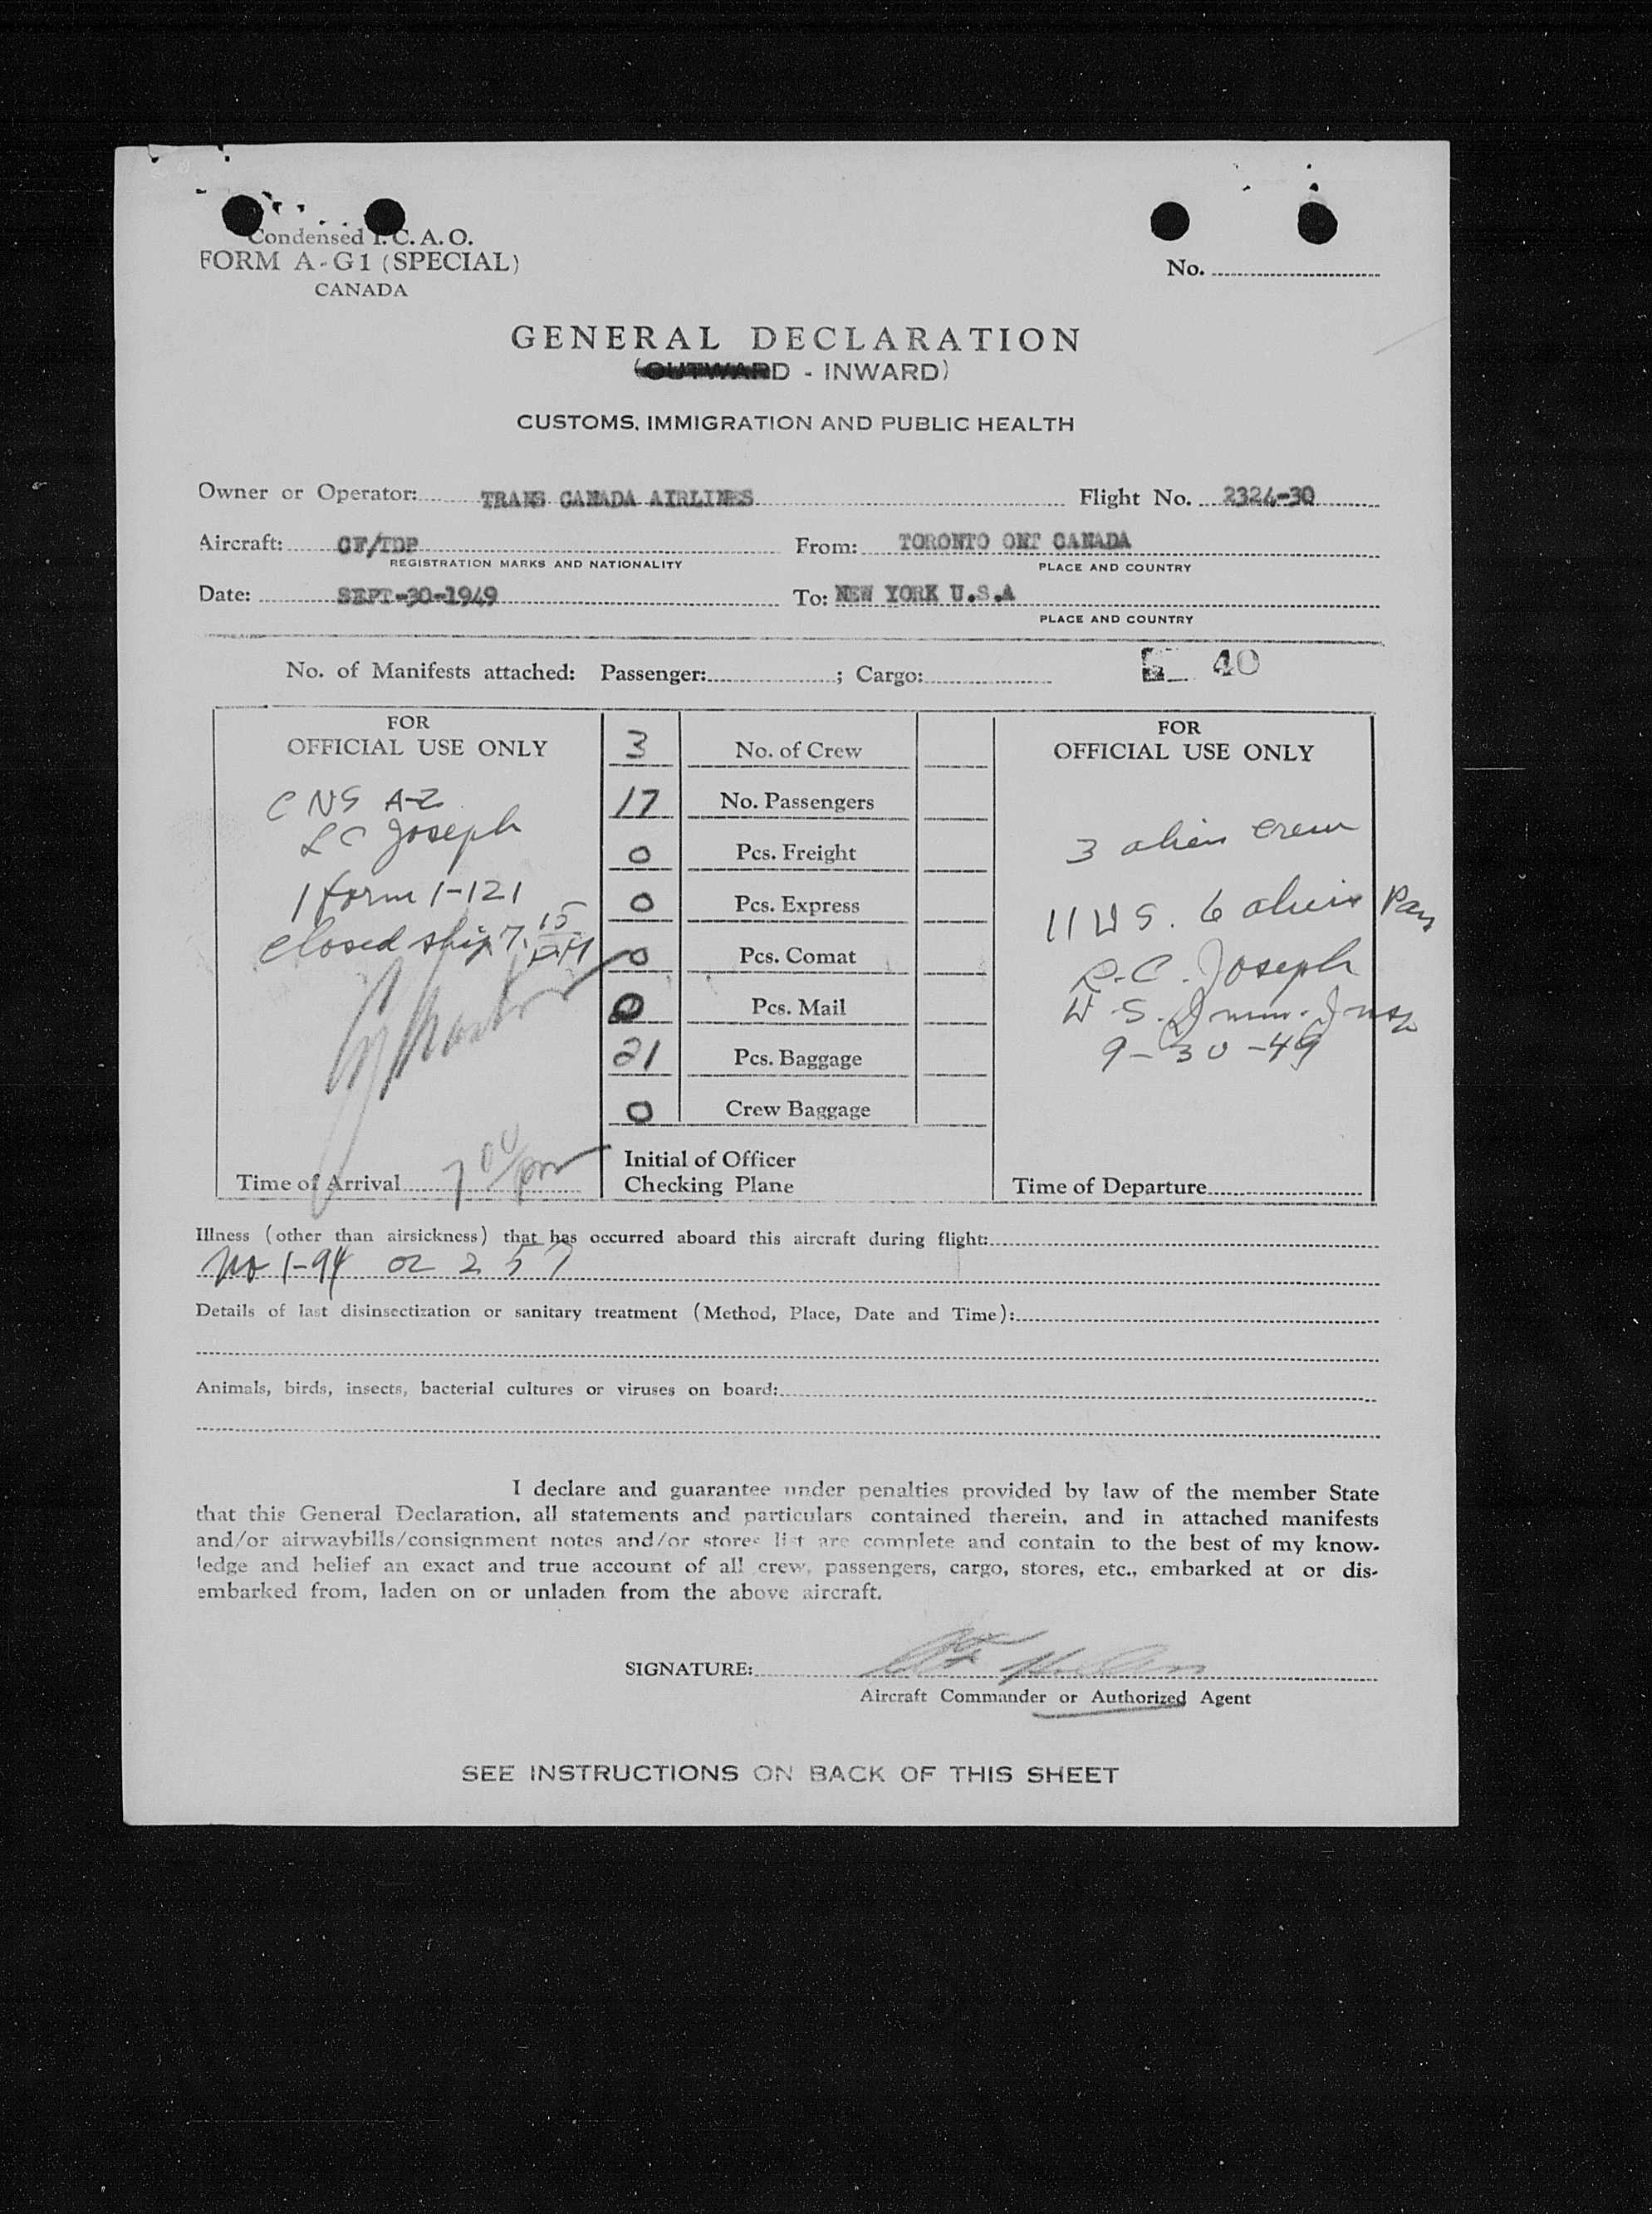 Condensed I. C. A. O.
FORM A-G1 (SPECIAL)
CANADA
No.
GENERAL DECLARATION
(OUTWARD - INWARD)
CUSTOMS, IMMIGRATION AND PUBLIC HEALTH
Owner or Operator: TRANS CANADA AIRLINES Flight No. 2324-30
Aircraft: CF/TDP From: TORONTO ONT CANADA
REGISTRATION MARKS AND NATIONALITY PLACE AND COUNTRY
Date: SEPT-30-1949 To: NEW YORK U.S.A
PLACE AND COUNTRY
No. of Manifests attached: Passenger: ; Cargo: 40
FOR
OFFICIAL USE ONLY
C NS A-Z
Joseph
1 form 1-121
closed ship 7.15 PM
Time of Arrival 7 00/pm
3 No. of Crew
17 No. Passengers
0 Pcs. Freight
0 Pcs. Express
0 Pcs. Comat
0 Pcs. Mail
21 Pcs. Baggage
0 Crew Baggage
Initial of Officer
Checking Plane
FOR
OFFICIAL USE ONLY
3 alien crew
11 US. 6 alien Pas
R.C. Joseph
U.S. Imm. Insp
9-30-49
Time of Departure
Illness (other than airsickness) that has occurred aboard this aircraft during flight:
No 1-94 or 257
Details of last disinsectization or sanitary treatment (Method, Place, Date and Time):
Animals, birds, insects, bacterial cultures or viruses on board:
I declare and guarantee under penalties provided by law of the member State
that this General Declaration, all statements and particulars contained therein, and in attached manifests
and/or airwaybills/consignment notes and/or stores list are complete and contain to the best of my know-
ledge and belief an exact and true account of all crew, passengers, cargo, stores, etc., embarked at or dis-
embarked from, laden on or unladen from the above aircraft.
SIGNATURE:
Aircraft Commander or Authorized Agent
SEE INSTRUCTIONS ON BACK OF THIS SHEET